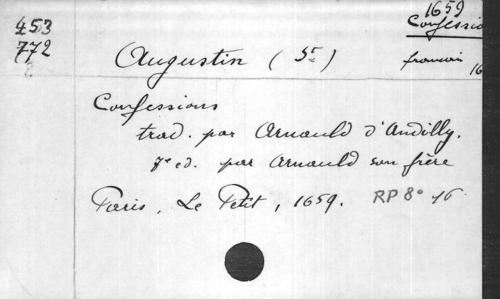 1659
453
772
Confessio
Augustin (St)
francais
16
Confessions
trad. par Arnauld d'Andilly.
7e ed. par Arnauld son frère
Paris, Le Petit, 1659. RP 8° 16